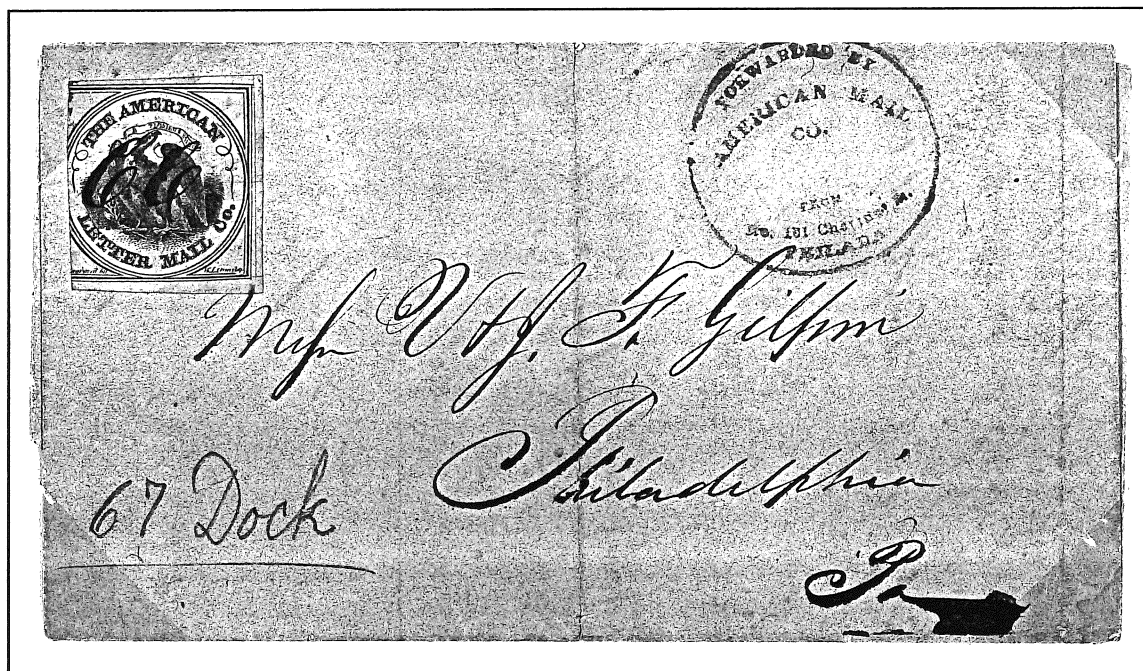 THE AMERICAN
LETTER MAIL Co.
FORWARDED BY
AMERICAN MAIL
CO.
FROM
No. 101 Chesnut St.
PHILADA
Messrs V & J. F. Gilpin
Philadelphia
Pa
67 Dock